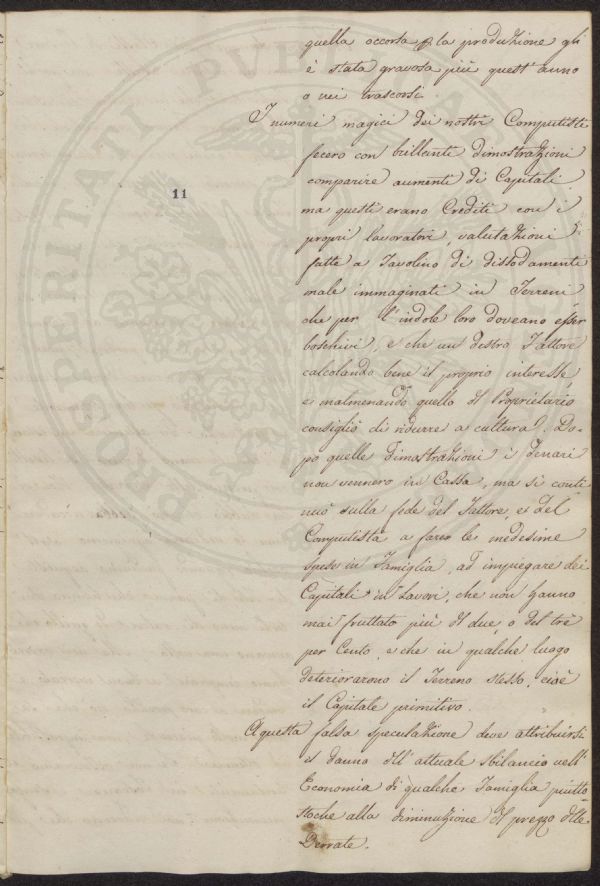 quella occorsa p la produzione gli
è stata gravosa più quest'anno
o nei trascorsi.
I numeri magici dei nostri Computisti
fecero con brillanti dimostrazioni
comparire aumenti di Capitali,
ma questi erano Crediti con i
propri lavoratori, valutazioni
fatte a Tavolino di dissodamenti
male immaginati in Terreni
che per l'indole loro doveano esser
boschivi, e che un destro Fattore
calcolando bene il proprio interesse,
e malmenando quello del Proprietario
consigliò di ridurre a cultura. Do-
po quelle dimostrazioni i Denari
non vennero in Cassa, ma si conti
nuò sulla fede del Fattore, e del
Computista a fare le medesime
spese in Famiglia, ad impiegare dei
Capitali in Lavori, che non hanno
mai fruttato più del due, o del trè
per Cento, e che in qualche luogo
deteriorarono il Terreno stesso, cioè
il Capitale primitivo.
A questa falsa speculazione deve attribuirsi
il danno dell'attuale sbilancio nell'
Economia di qualche Famiglia piutto-
stoche alla diminuzione del prezzo delle
Derrate.
11
PROSPERITATI PUBLICAE